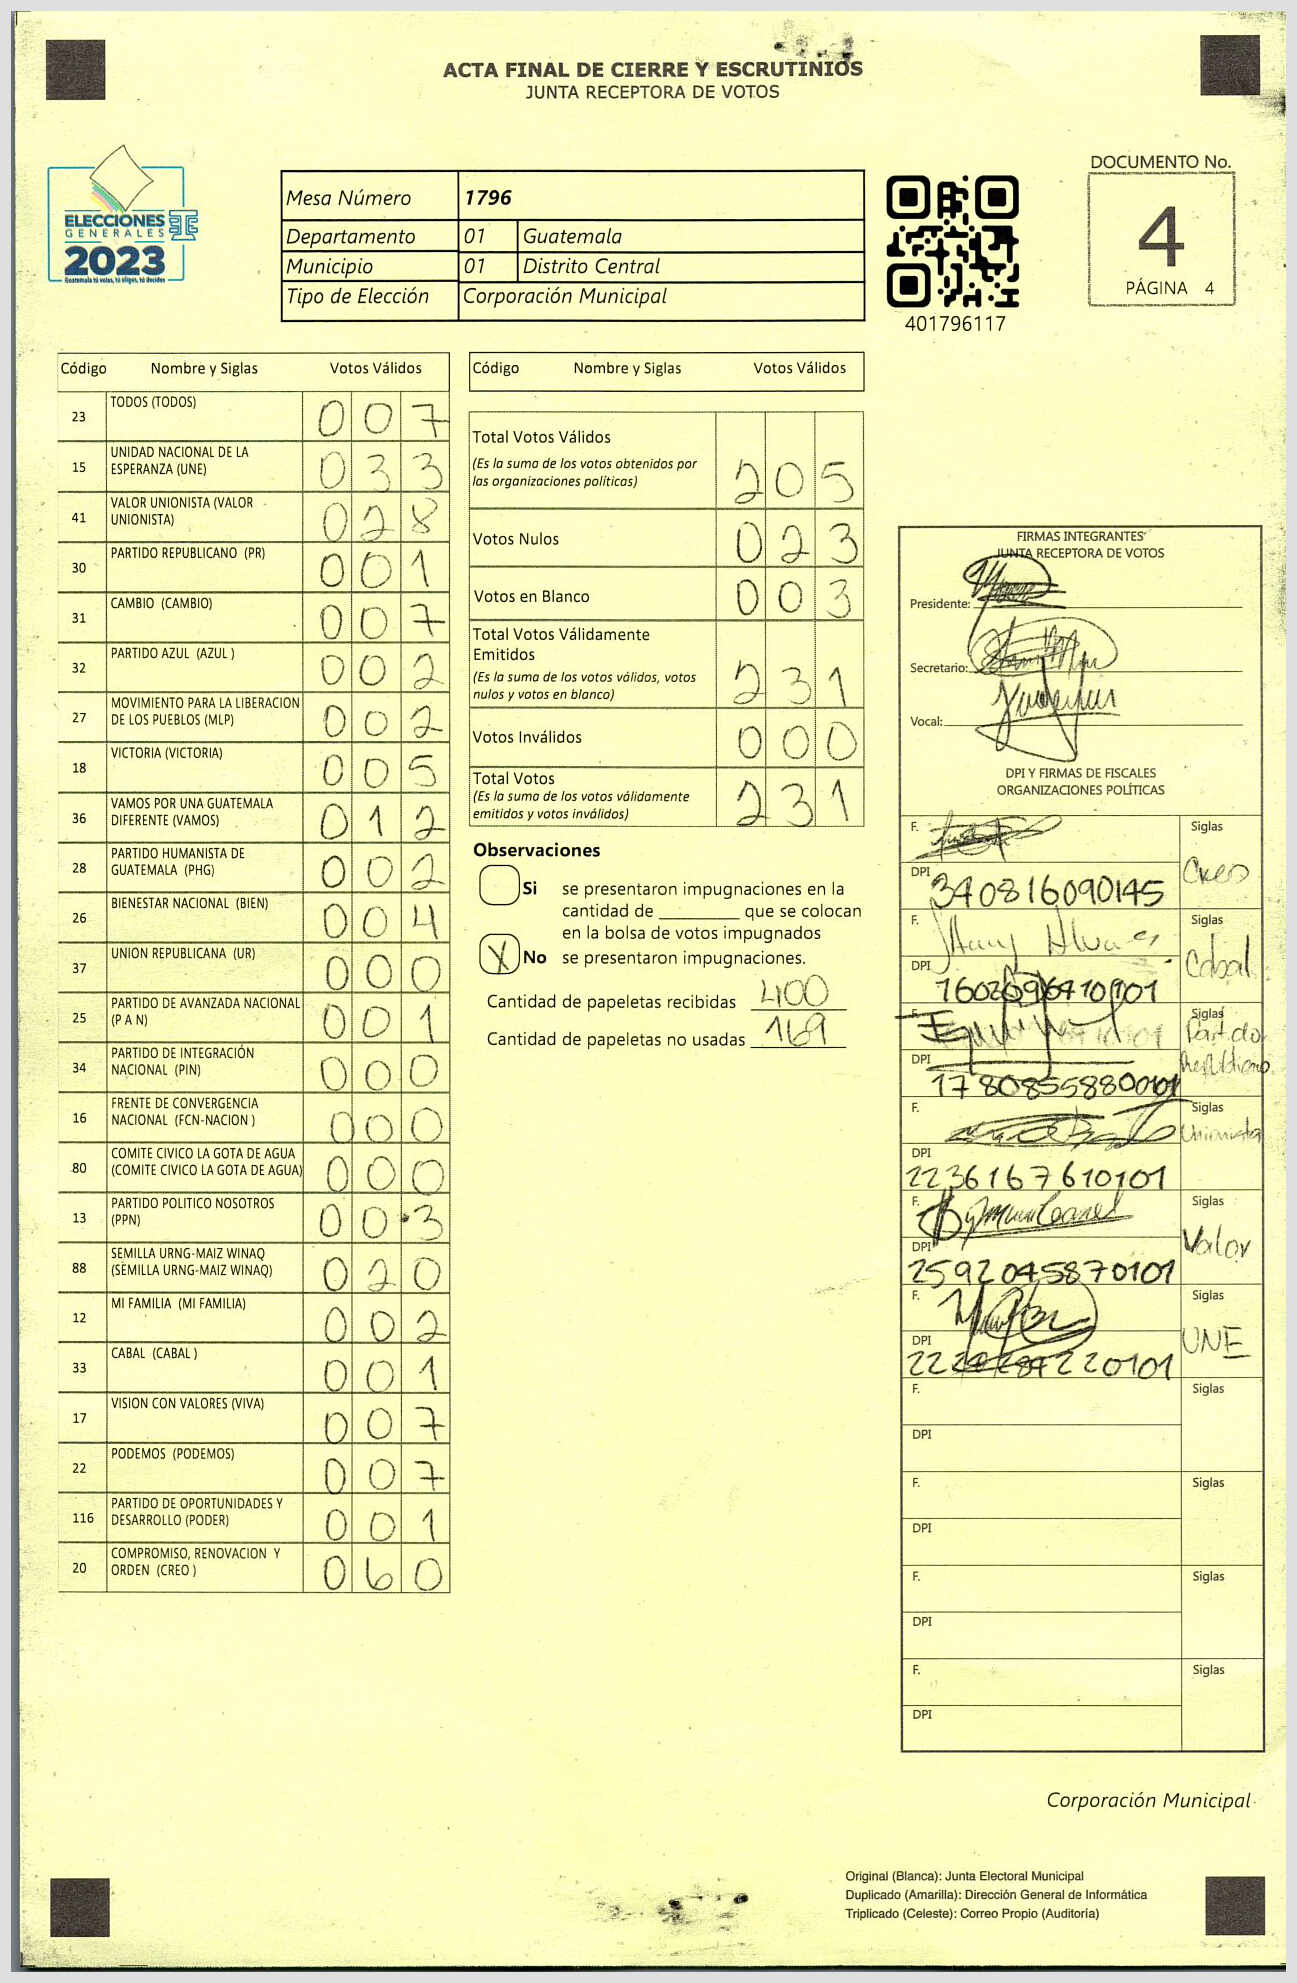 ACTA FINAL DE CIERRE Y ESCRUTINIOS
JUNTA RECEPTORA DE VOTOS
ELECCIONES
GENERALES
2023
Guatemala tú votas, tú eliges, tú decides
Mesa Número 1796
Departamento 01 Guatemala
Municipio 01 Distrito Central
Tipo de Elección Corporación Municipal
401796117
DOCUMENTO No.
4
PÁGINA 4
Código Nombre y Siglas Votos Válidos
23 TODOS (TODOS) 007
15 UNIDAD NACIONAL DE LA
ESPERANZA (UNE) 033
41 VALOR UNIONISTA (VALOR
UNIONISTA) 028
30 PARTIDO REPUBLICANO (PR) 001
31 CAMBIO (CAMBIO) 007
32 PARTIDO AZUL (AZUL ) 002
27 MOVIMIENTO PARA LA LIBERACION
DE LOS PUEBLOS (MLP) 002
18 VICTORIA (VICTORIA) 005
36 VAMOS POR UNA GUATEMALA
DIFERENTE (VAMOS) 012
28 PARTIDO HUMANISTA DE
GUATEMALA (PHG) 002
26 BIENESTAR NACIONAL (BIEN) 004
37 UNION REPUBLICANA (UR) 000
25 PARTIDO DE AVANZADA NACIONAL
(P A N) 001
34 PARTIDO DE INTEGRACIÓN
NACIONAL (PIN) 000
16 FRENTE DE CONVERGENCIA
NACIONAL (FCN-NACION ) 000
80 COMITE CIVICO LA GOTA DE AGUA
(COMITE CIVICO LA GOTA DE AGUA) 000
13 PARTIDO POLITICO NOSOTROS
(PPN) 003
88 SEMILLA URNG-MAIZ WINAQ
(SEMILLA URNG-MAIZ WINAQ) 020
12 MI FAMILIA (MI FAMILIA) 002
33 CABAL (CABAL ) 001
17 VISION CON VALORES (VIVA) 007
22 PODEMOS (PODEMOS) 007
116 PARTIDO DE OPORTUNIDADES Y
DESARROLLO (PODER) 001
20 COMPROMISO, RENOVACION Y
ORDEN (CREO ) 060
Código Nombre y Siglas Votos Válidos
Total Votos Válidos
(Es la suma de los votos obtenidos por
las organizaciones políticas) 205
Votos Nulos 023
Votos en Blanco 003
Total Votos Válidamente
Emitidos
(Es la suma de los votos válidos, votos
nulos y votos en blanco) 231
Votos Inválidos 000
Total Votos
(Es la suma de los votos válidamente
emitidos y votos inválidos) 231
Observaciones
Si se presentaron impugnaciones en la
cantidad de ________ que se colocan
en la bolsa de votos impugnados
X No se presentaron impugnaciones.
Cantidad de papeletas recibidas 400
Cantidad de papeletas no usadas 169
FIRMAS INTEGRANTES
JUNTA RECEPTORA DE VOTOS
Presidente:
Secretario:
Vocal:
DPI Y FIRMAS DE FISCALES
ORGANIZACIONES POLÍTICAS
F. Siglas
Creo
DPI 340816090145
F. Siglas
Cabal
DPI
F. Siglas
Partido
Republicano
DPI
F. Siglas
Unionista
DPI 2236167610101
F. Siglas
Valor
DPI 2592045870101
F. Siglas
UNE
DPI
F. Siglas
DPI
F. Siglas
DPI
F. Siglas
DPI
F. Siglas
DPI
Corporación Municipal
Original (Blanca): Junta Electoral Municipal
Duplicado (Amarilla): Dirección General de Informática
Triplicado (Celeste): Correo Propio (Auditoría)